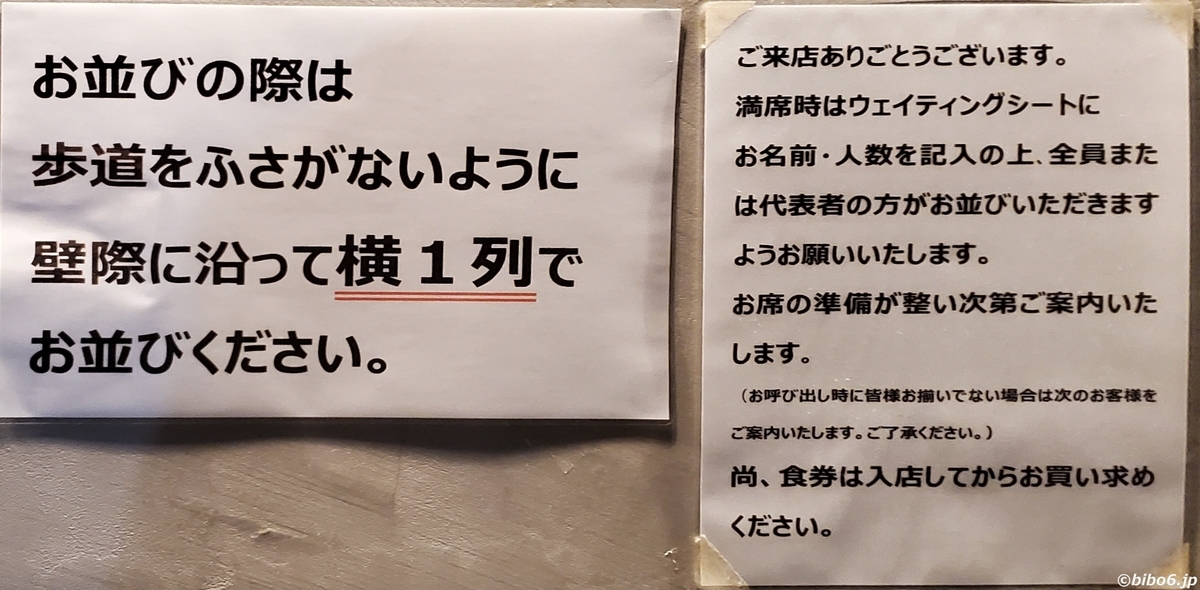 お並びの際は
歩道をふさがないように
壁際に沿って横１列で
お並びください。
ご来店ありごとうございます。
満席時はウェイティングシートに
お名前・人数を記入の上、全員また
は代表者の方がお並びいただきます
ようお願いいたします。
お席の準備が整い次第ご案内いた
します。
（お呼び出し時に皆様お揃いでない場合は次のお客様を
ご案内いたします。ご了承ください。）
尚、食券は入店してからお買い求め
ください。
©bibo6.jp